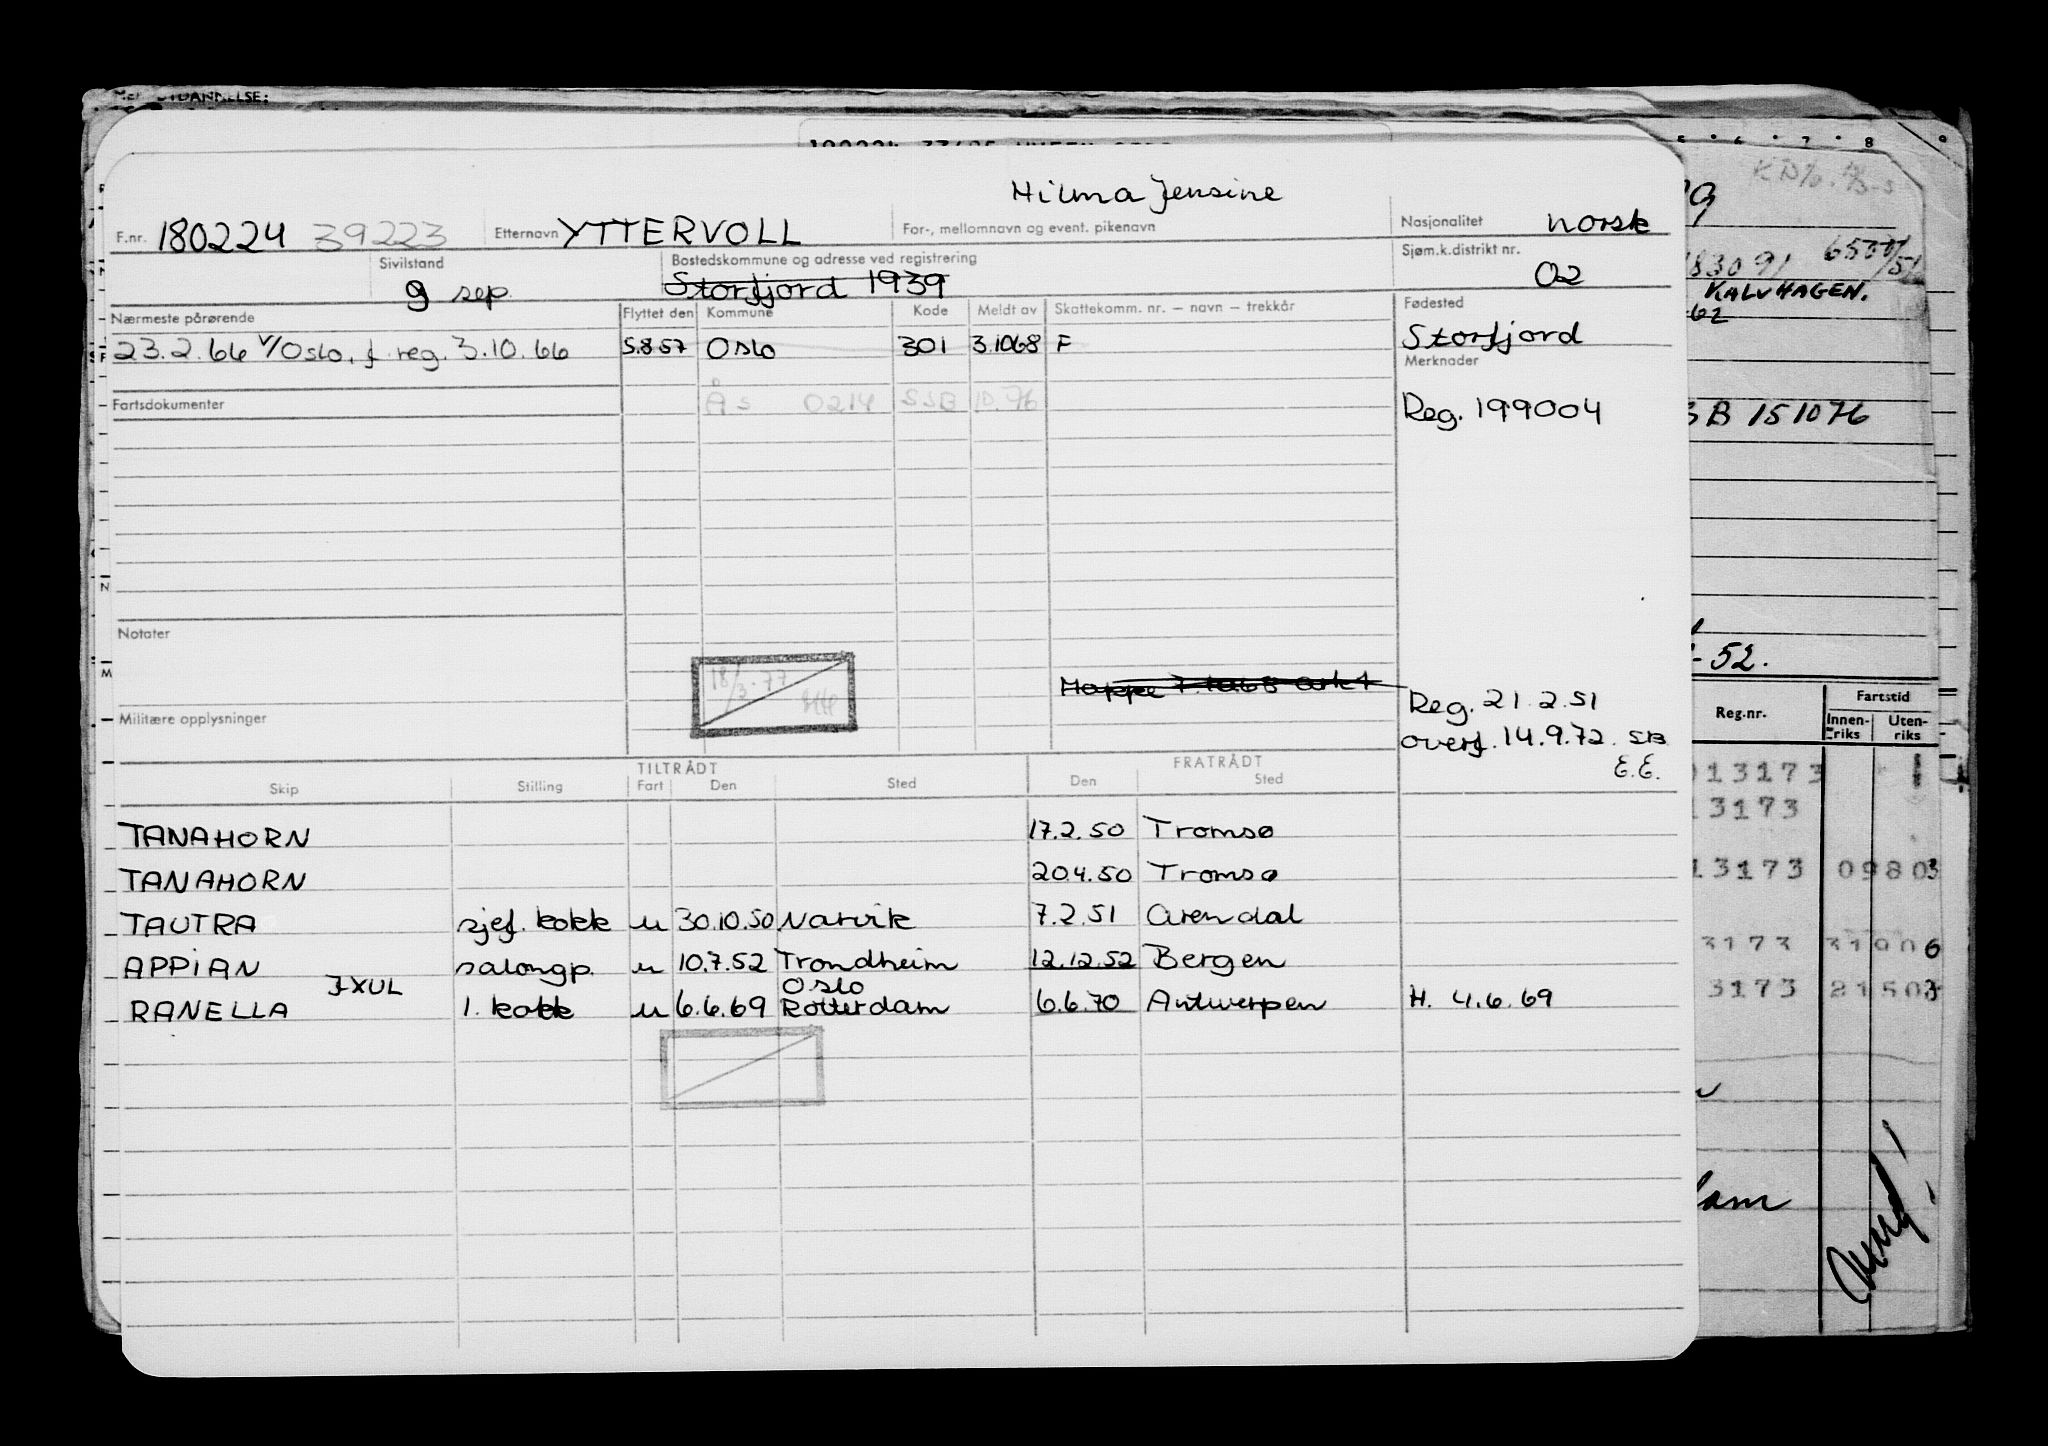 Hilma Jensine
F.nr. 180224 39223 Etternavn YTTERVOLL For-, mellomnavn og event. pikenavn Nasjonalitet norsk
Sivilstand g sep. Bostedskommune og adresse ved registrering Storfjord 1939 Sjøm.k.distrikt nr. 02
Nærmeste pårørende Flyttet den Kommune Kode Meldt av Skattekomm. nr. – navn – trekkår Fødested
23.2.66 v/Oslo, f. reg. 3.10.66 5.8.57 Oslo 301 3.1068 F Storfjord
Merknader
Fartsdokumenter Ås 0214 SSB 10.76 Reg. 199004
Notater
18/3.77
Mappe 7.1068
Reg. 21.2.51
Militære opplysninger
overf. 14.9.72. SB
E.E.
TILTRÅDT FRATRÅDT
Skip Stilling Fart Den Sted Den Sted
TANAHORN 17.2.50 Tromsø
TANAHORN 20.4.50 Tromsø
TAUTRA sjef. kokk u 30.10.50 Narvik 7.2.51 Arendal
APPIAN salongp. u 10.7.52 Trondheim 12.12.52 Bergen
JXUL Oslo
RANELLA 1. kokk u 6.6.69 Rotterdam 6.6.70 Antwerpen H. 4.6.69
5 6 7 8 9
183091
KALVHAGEN.
62
B 151076
- 52.
Fartstid
Reg.nr. Innen-riks Uten-riks
13173
13173
13173 09803
3173 31906
3173 21503